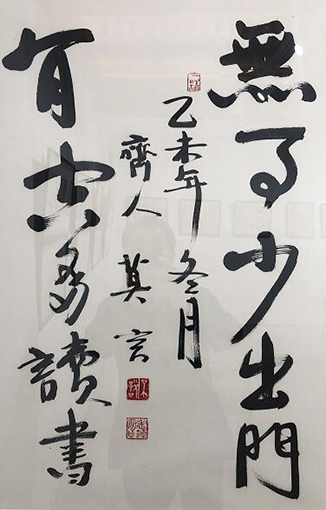 無事少出門
乙未年冬月
齊人莫言
有空多讀書